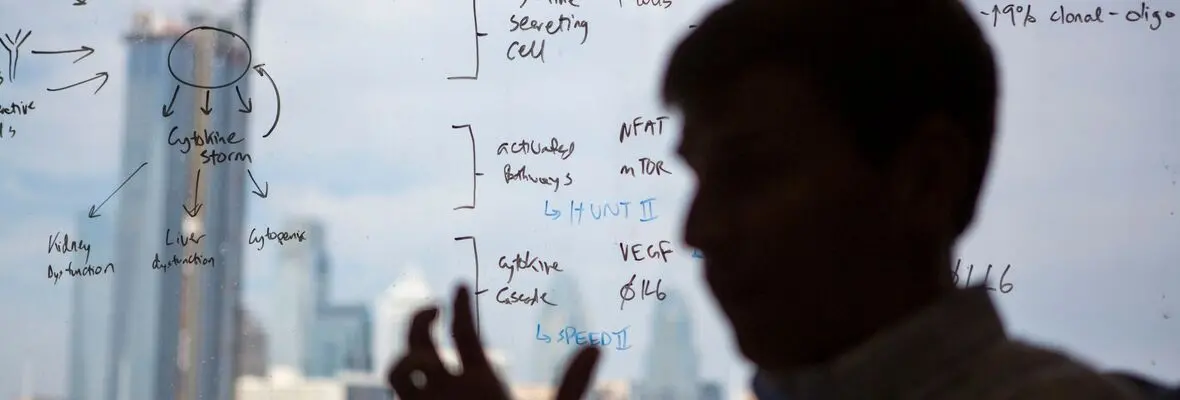 secreting
cell
-↑9% clonal-oligo
Cytokine
storm
Kidney
Dysfunction
Liver
dysfunction
Cytopenia
activated
Pathways
NFAT
mTOR
↳ HUNT II
Cytokine
Cascade
VEGF
∅IL6
↳ SPEED II
IL6